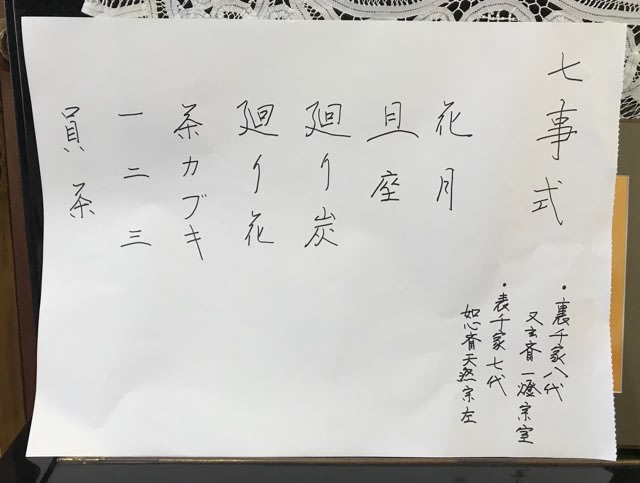 七事式
・裏千家八代
又玄斉一燈宗室
・表千家七代
如心斉天然宗左
花月
且座
廻り炭
廻り花
茶カブキ
一二三
員茶